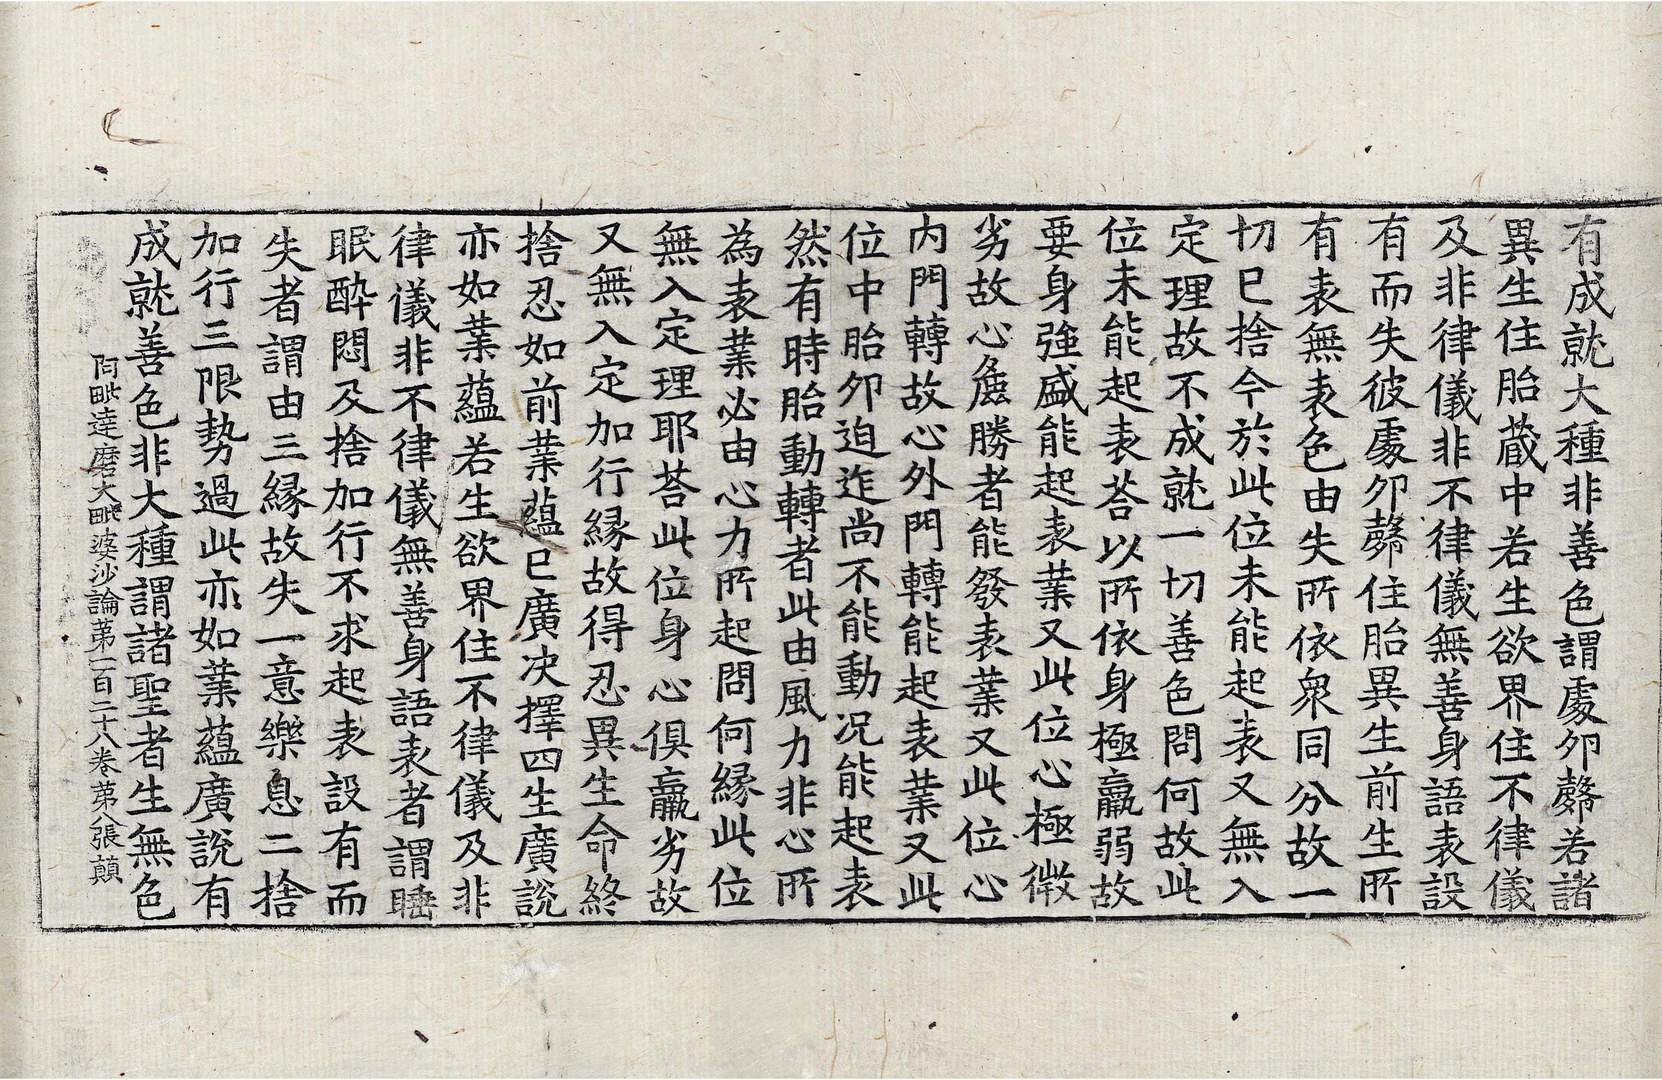 有成就大種非善色謂處卵㲉若諸
異生住胎藏中若生欲界住不律儀
及非律儀非不律儀無善身語表設
有而失彼處卵㲉住胎異生前生所
有表無表色由失所依衆同分故一
切已捨今於此位未能起表又無入
定理故不成就一切善色問何故此
位未能起表荅以所依身極羸弱故
要身強盛能起表業又此位心極微
劣故心麁勝者能發表業又此位心
內門轉故心外門轉能起表業又此
位中胎卵迫迮尚不能動况能起表
然有時胎動轉者此由風力非心所
為表業必由心力所起問何縁此位
無入定理耶荅此位身心俱羸劣故
又無入定加行縁故得忍異生命終
捨忍如前業蘊已廣决擇四生廣說
亦如業蘊若生欲界住不律儀及非
律儀非不律儀無善身語表者謂睡
眠醉悶及捨加行不求起表設有而
失者謂由三縁故失一意樂息二捨
加行三限勢過此亦如業蘊廣說有
成就善色非大種謂諸聖者生無色
阿毗達磨大毗婆沙論第一百二十八卷第八張顛